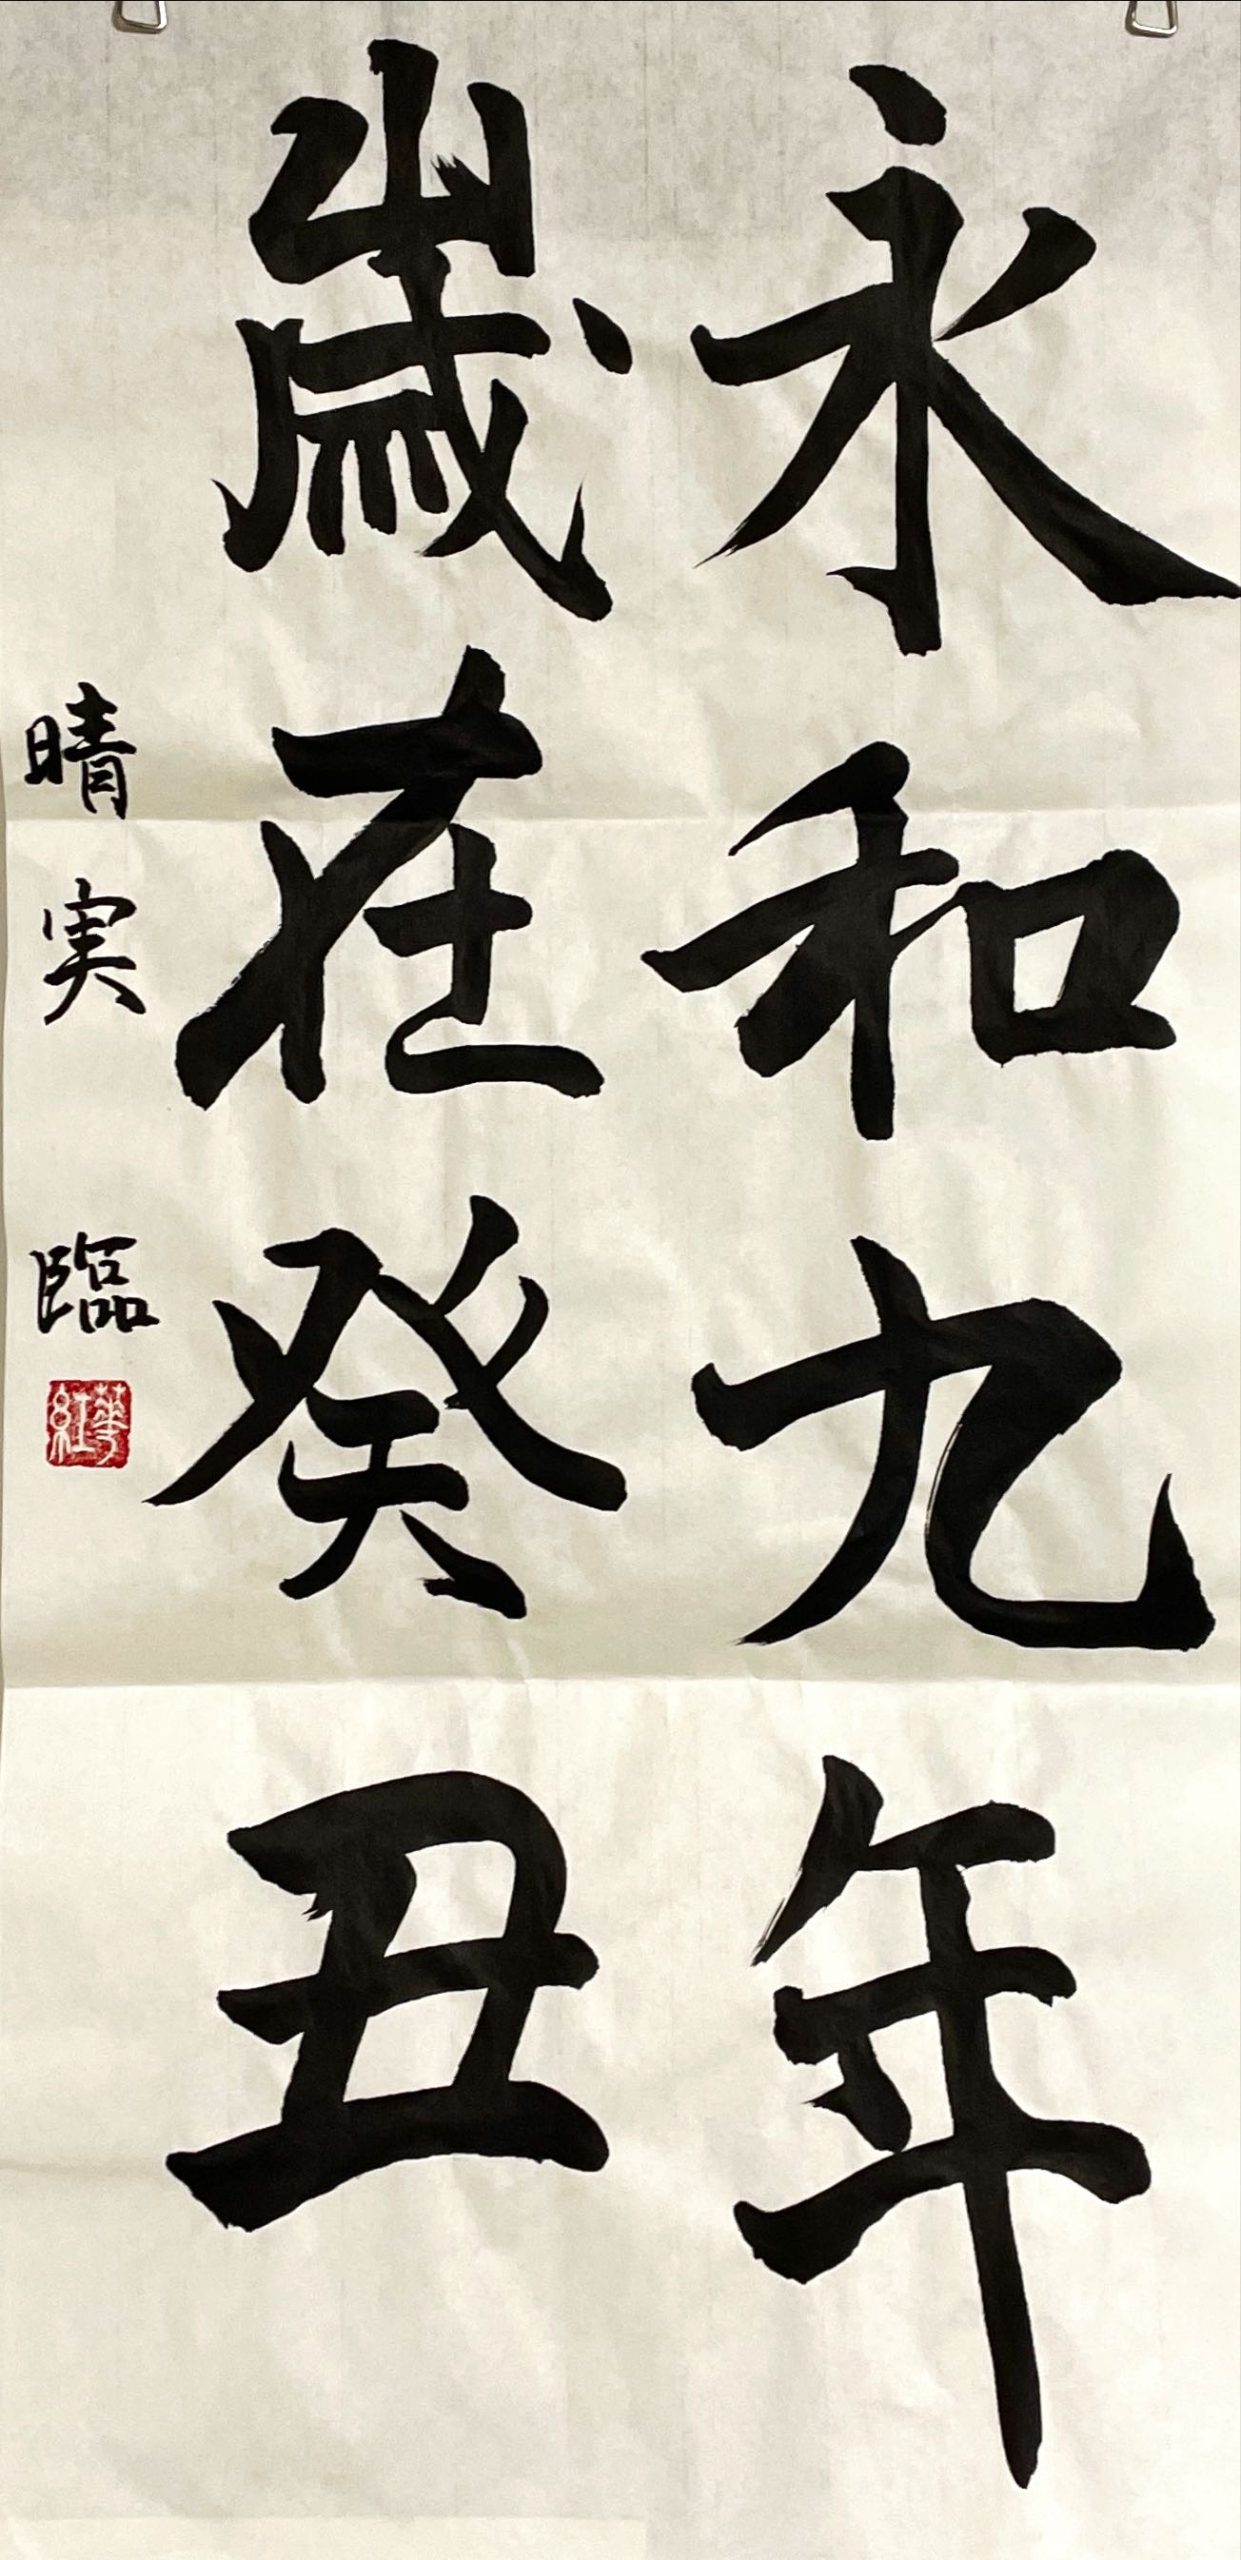 永和九年
歳在癸丑
晴実 臨
華紅